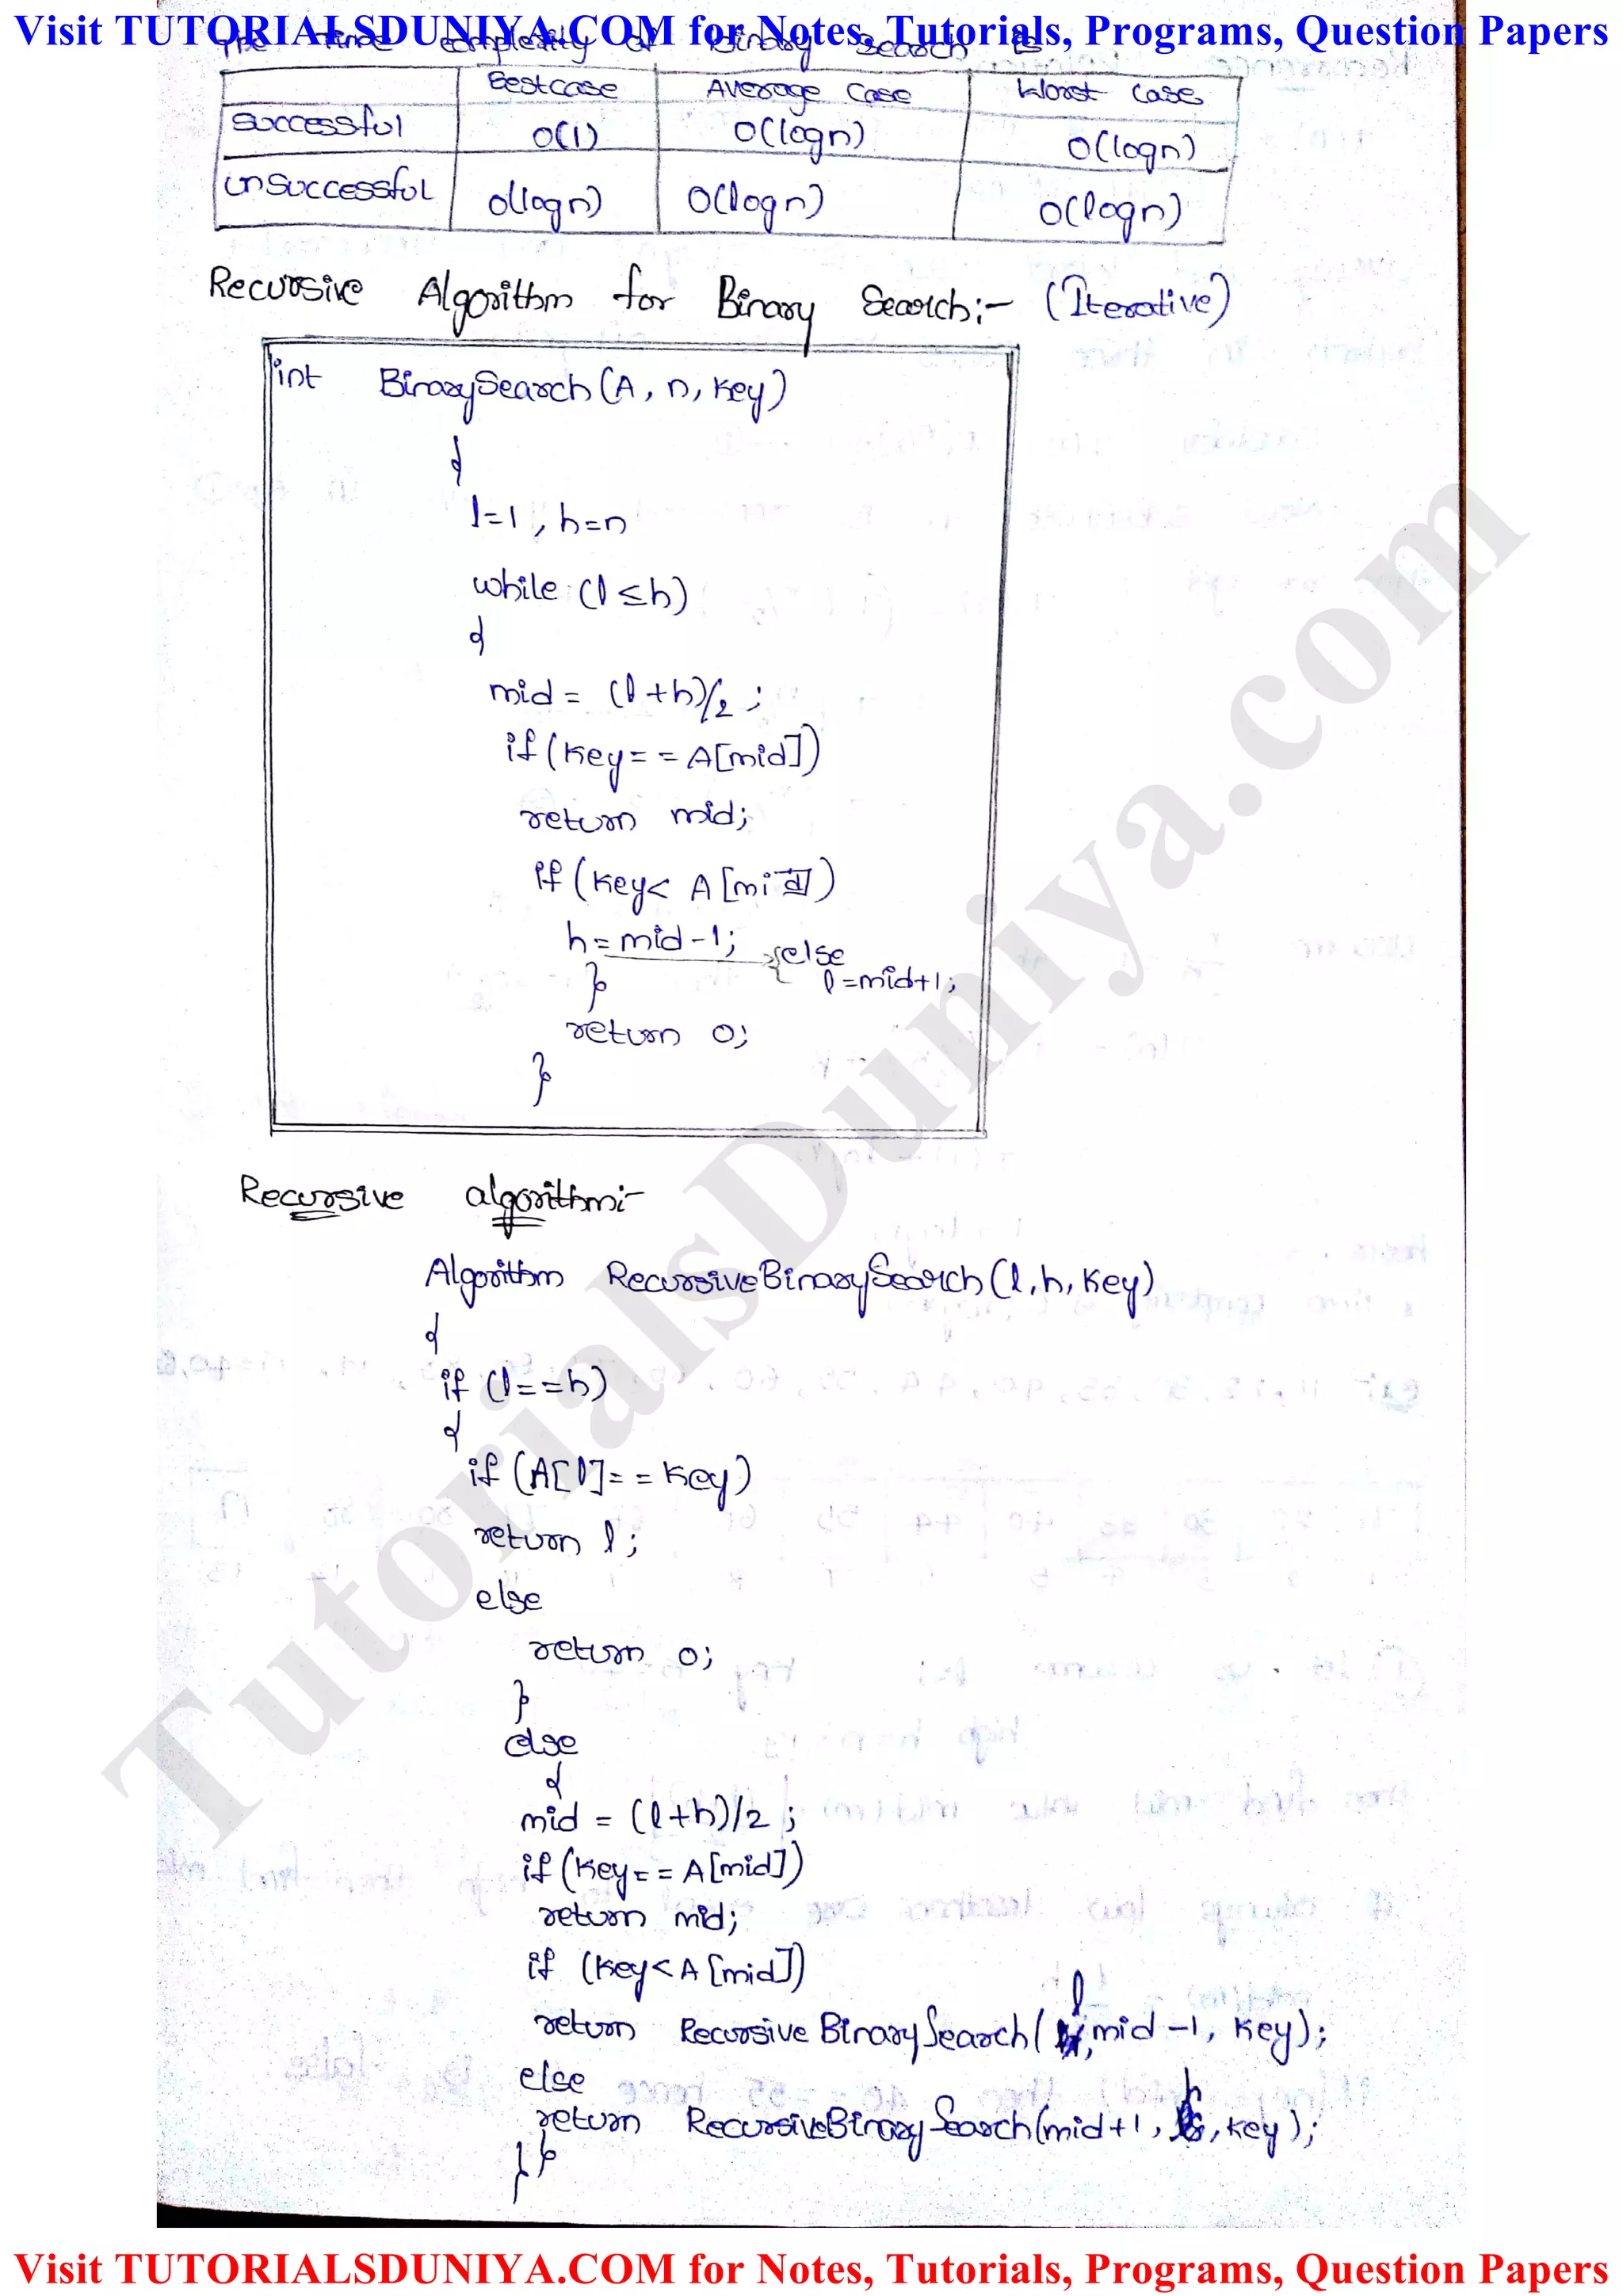 Visit TUTORIALSDUNIYA.COM for Notes, Tutorials, Programs, Question Papers
The time complexity of Binary Search is
Best case Average Case Worst Case
Successful O(1) O(logn) O(logn)
unSuccessful O(logn) O(logn) O(logn)
Recursive Algorithm for Binary Search:- (Iterative)
int BinarySearch(A, n, key)
{
l=1, h=n
while (l≤h)
{
mid = (l+h)/2;
if(key==A[mid])
return mid;
if(key< A[mid])
h=mid-1; else
l=mid+1;
}
return 0;
}
Recursive algorithm:-
Algorithm RecursiveBinarySearch(l,h,key)
{
if (l==h)
{
if (A[l]==key)
return l;
else
return 0;
}
else
{
mid = (l+h)/2;
if(key==A[mid])
return mid;
if (key<A[mid])
return RecursiveBinarySearch(l, mid-1, key);
else
return RecursiveBinarySearch(mid+1, h, key);
}}
TutorialsDuniya.com
Visit TUTORIALSDUNIYA.COM for Notes, Tutorials, Programs, Question Papers